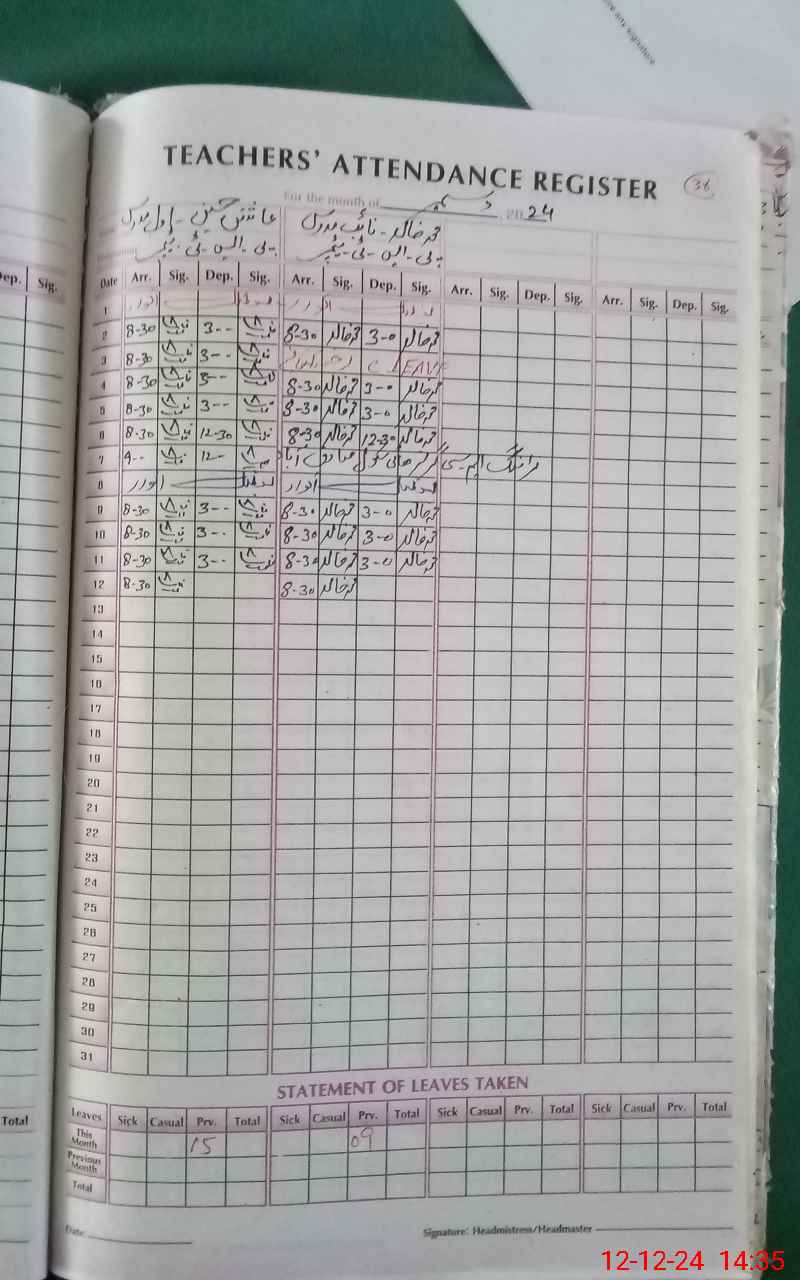 any signature
TEACHERS' ATTENDANCE REGISTER
38
For the month of دسمبر 2024
عاشق حسین - اول مدرس
محمد خالد - نائب مدرس
پی - ایس - ٹی
پی - ایس - ٹی
Dep. Sig.
Date Arr. Sig. Dep. Sig. Arr. Sig. Dep. Sig. Arr. Sig. Dep. Sig. Arr. Sig. Dep. Sig.
1 اتوار اتوار
2 8-30 3-- 8-30 محمد خالد 3-0 محمد خالد
3 8-30 3-- LEAVE
4 8-30 3-- 8-30 محمد خالد 3-0 محمد خالد
5 8-30 3-- 8-30 محمد خالد 3-0 محمد خالد
6 8-30 12-30 8-30 محمد خالد 12-30 محمد خالد
7 9-- 12-
8 اتوار اتوار
9 8-30 3-- 8-30 محمد خالد 3-0 محمد خالد
10 8-30 3-- 8-30 محمد خالد 3-0 محمد خالد
11 8-30 3-- 8-30 محمد خالد 3-0 محمد خالد
12 8-30 8-30 محمد خالد
13
14
15
16
17
18
19
20
21
22
23
24
25
26
27
28
29
30
31
STATEMENT OF LEAVES TAKEN
Total
Leaves Sick Casual Prv. Total Sick Casual Prv. Total Sick Casual Prv. Total Sick Casual Prv. Total
This Month 15 09
Previous Month
Total
Date:
Signature: Headmistress/Headmaster
12-12-24 14:35